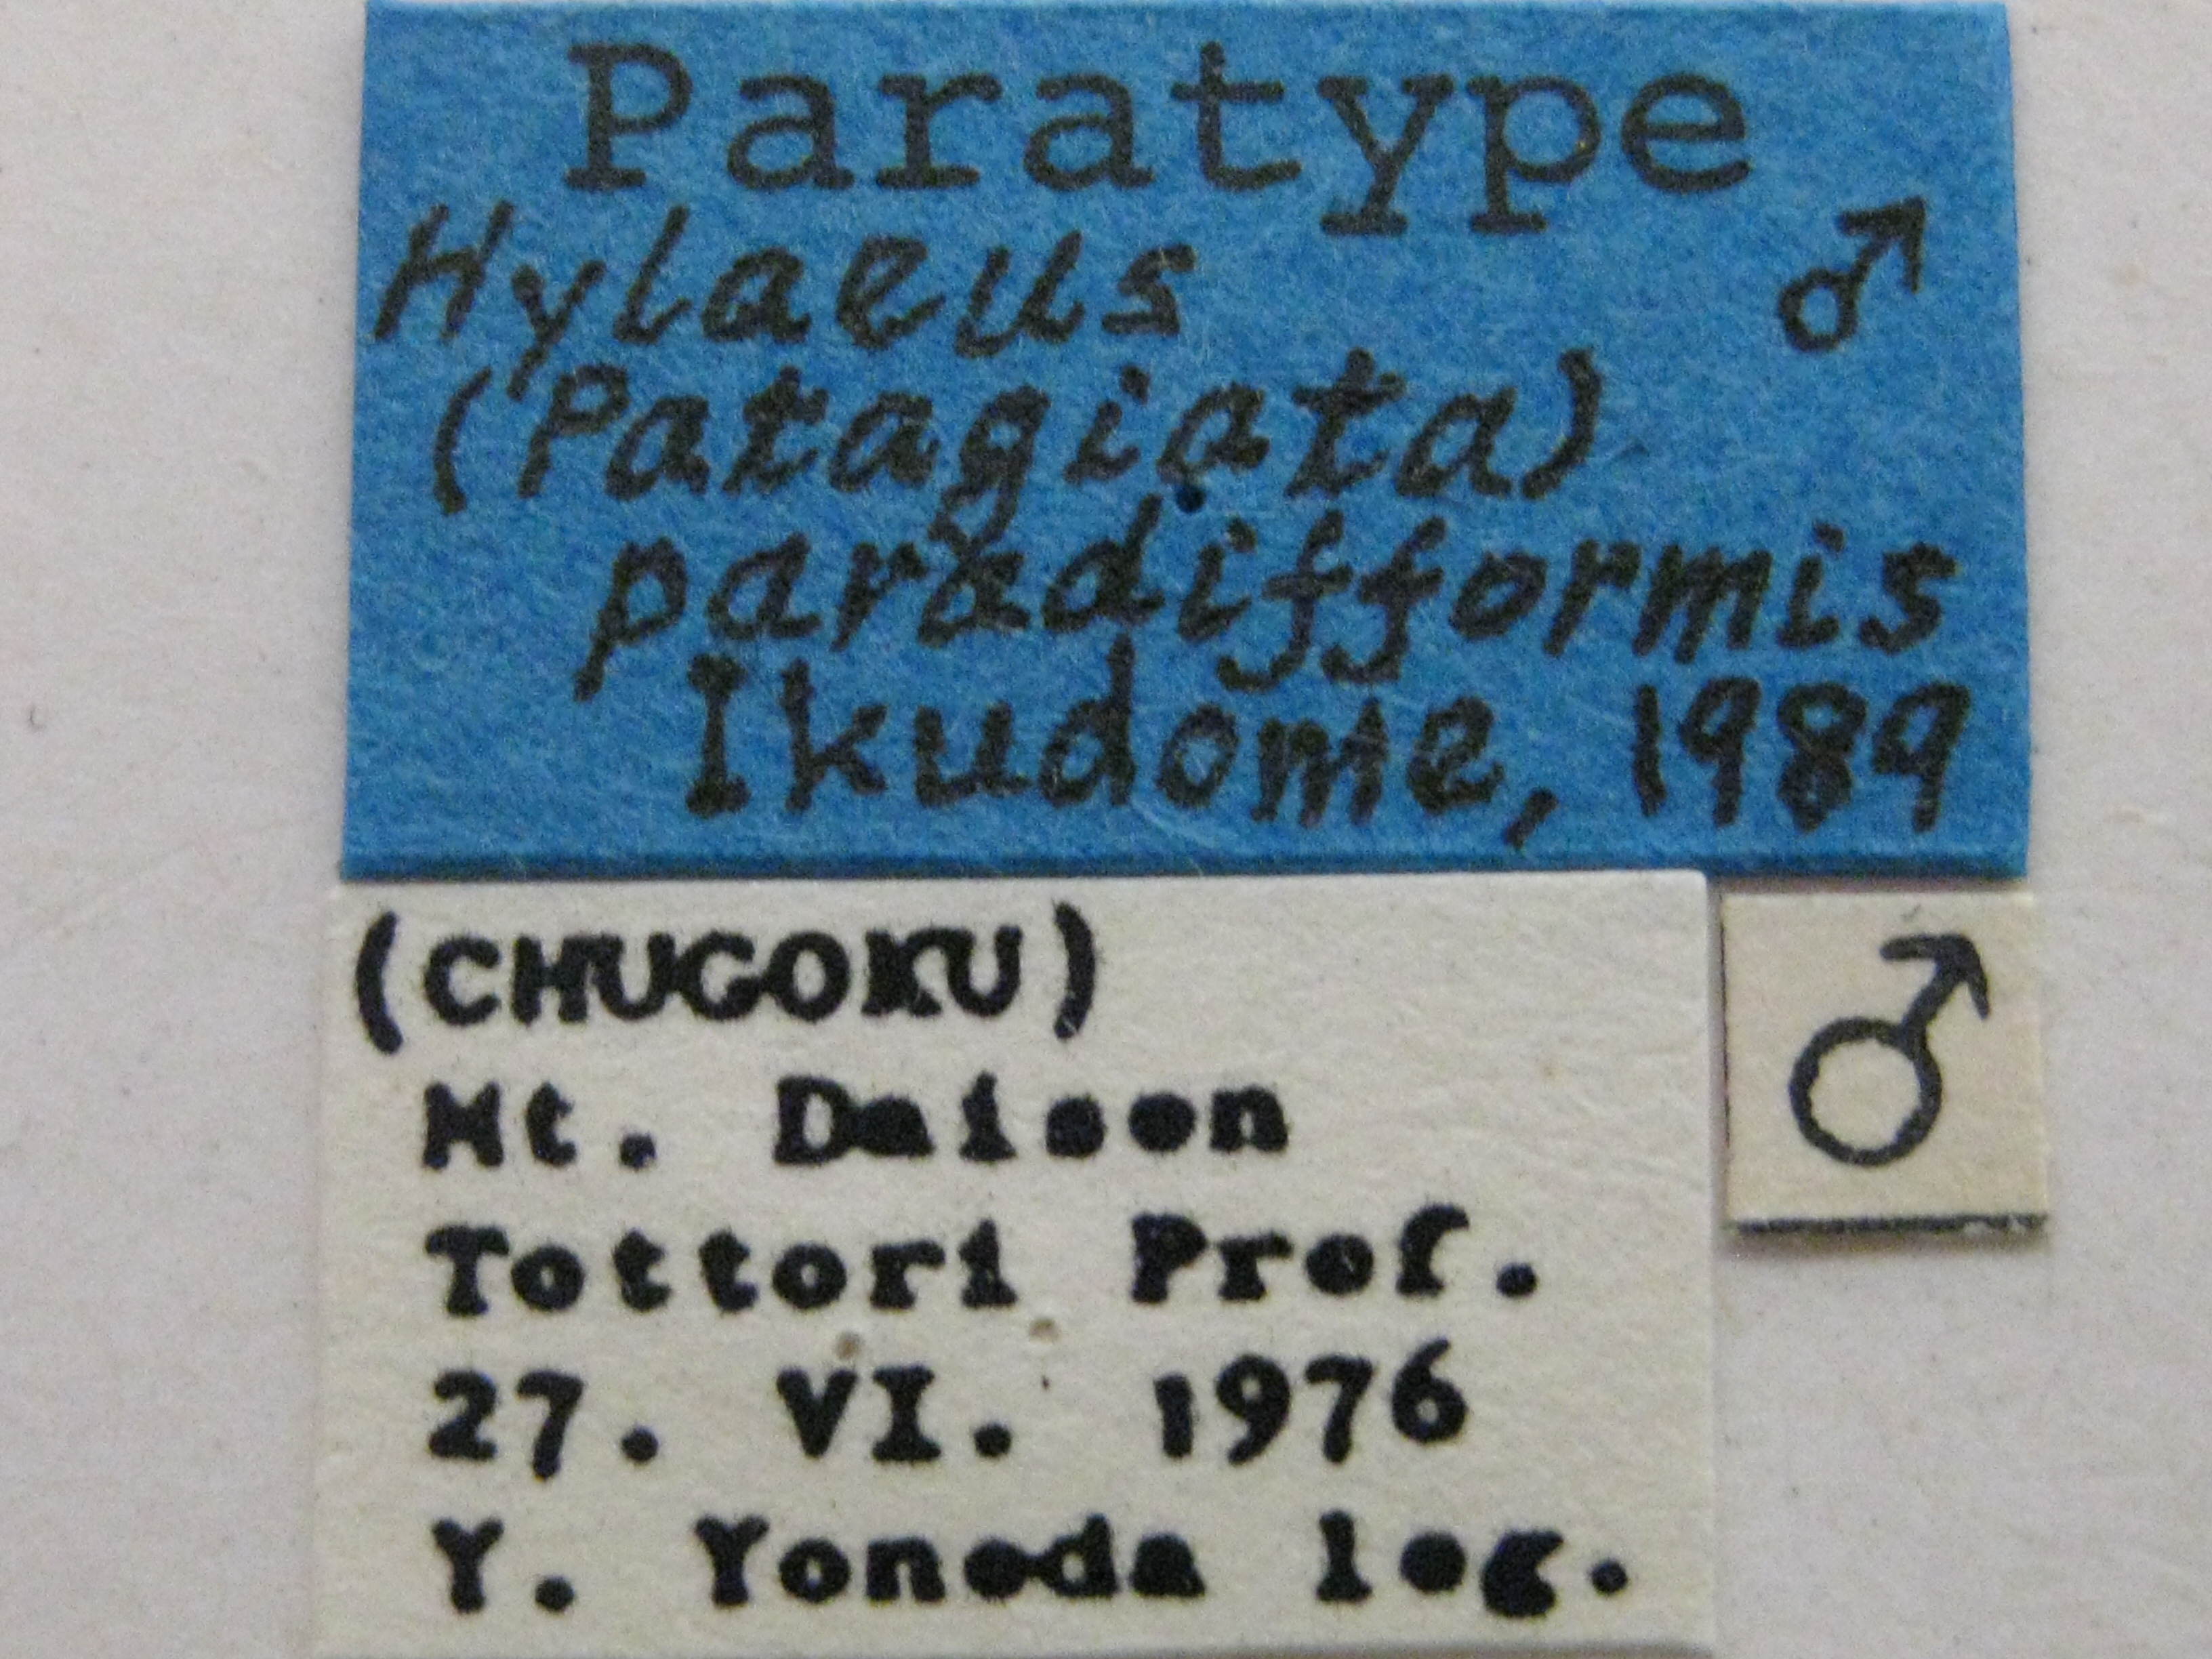 Paratype
Hylaeus ♂
(Patagiata)
paradifformis
Ikudome, 1989
(CHUGOKU)
Mt. Daisen
Tottori Pref.
27. VI. 1976
Y. Yoneda leg.
♂